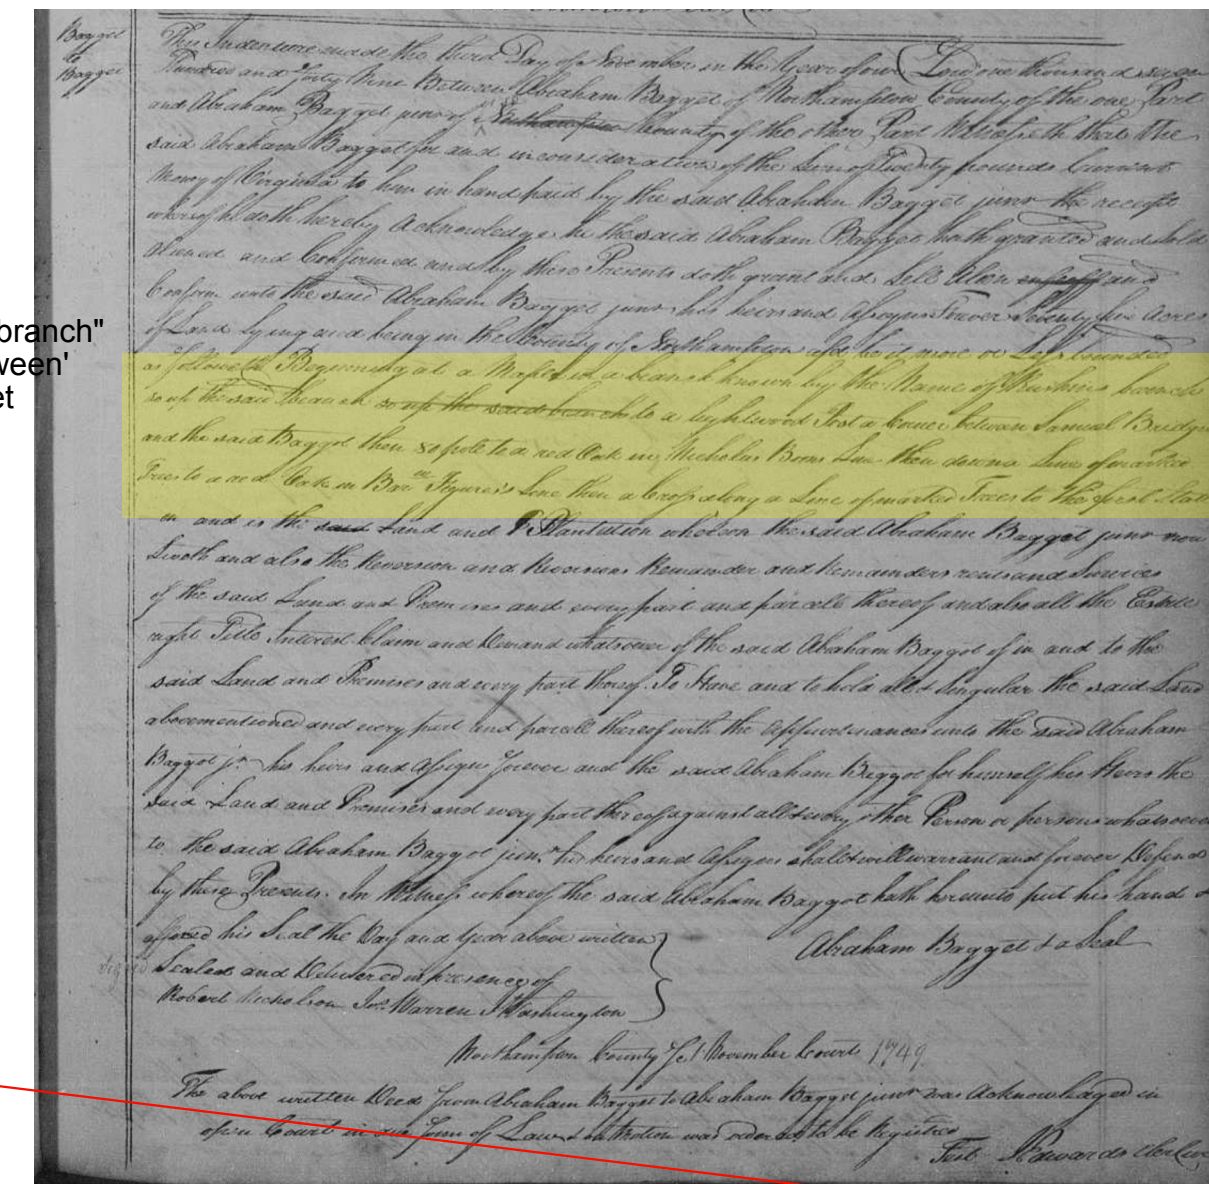 Bagget
to
Bagget
This Indenture made the third Day of November in the Year of our Lord one thousand seven
Hundred and forty Nine Between Abraham Bagget of Northampton County of the one Part
and Abraham Bagget junr of Northampton County of the other Part Witnesseth that the
said Abraham Bagget for and in consideration of the Sum of Twenty pounds Current
Money of Virginia to him in hand paid by the said Abraham Bagget junr the receipt
whereof he doth hereby Acknowledge he the said Abraham Bagget hath granted and Sold
Aliened and Confirmed and by these Presents doth grant and Sell Alien enfeoff and
Confirm unto the said Abraham Bagget junr his heirs and Assigns Forever Seventy five Acres
of Land lying and being in the County of Northampton afsd be it more or Less bounded
as followeth Beginning at a Maple in a branch known by the Name of branch
so up the said branch so up the said branch to a lightwood Post a Corner between Samuel Bridge
and the said Bagget then to a red Oak in Nicholas Line then down a Line of marked
Trees to a red Oak in Barw Figures's Line then a Cross along a Line of marked Trees to the first Stati
on and is the said Land and Plantation whereon the said Abraham Bagget junr now
Liveth and also the Reversion and Reversions Remainder and Remainders rents and Services
of the said Land and Premises and every part and parcell thereof and also all the Estate
right Title Interest Claim and Demand whatsoever of the said Abraham Bagget of in and to the
said Land and Premises and every part thereof To Have and to hold all & Singular the said Land
abovementioned and every part and parcell thereof with the Appurtenances unto the said Abraham
Bagget jr his heirs and Assigns forever and the said Abraham Bagget for himself his Heirs the
said Land and Premises and every part thereof against all & every other Person or persons whatsoever
to the said Abraham Bagget junr his heirs and Assigns shall & will warrant and forever Defend
by these Presents. In Witness whereof the said Abraham Bagget hath hereunto put his hand &
affixed his Seal the Day and Year above written
Abraham Bagget & a Seal
Signed Sealed and Delivered in presence of
Robert Nicholson Jos Warren Washington
Northampton County Sct November Court 1749
The above written Deed from Abraham Bagget to Abraham Bagget junr was Acknowledged in
open Court in due form of Law & on Motion was ordered to be Registred
Test Edwards Cler Cur
branch"
ween'
et